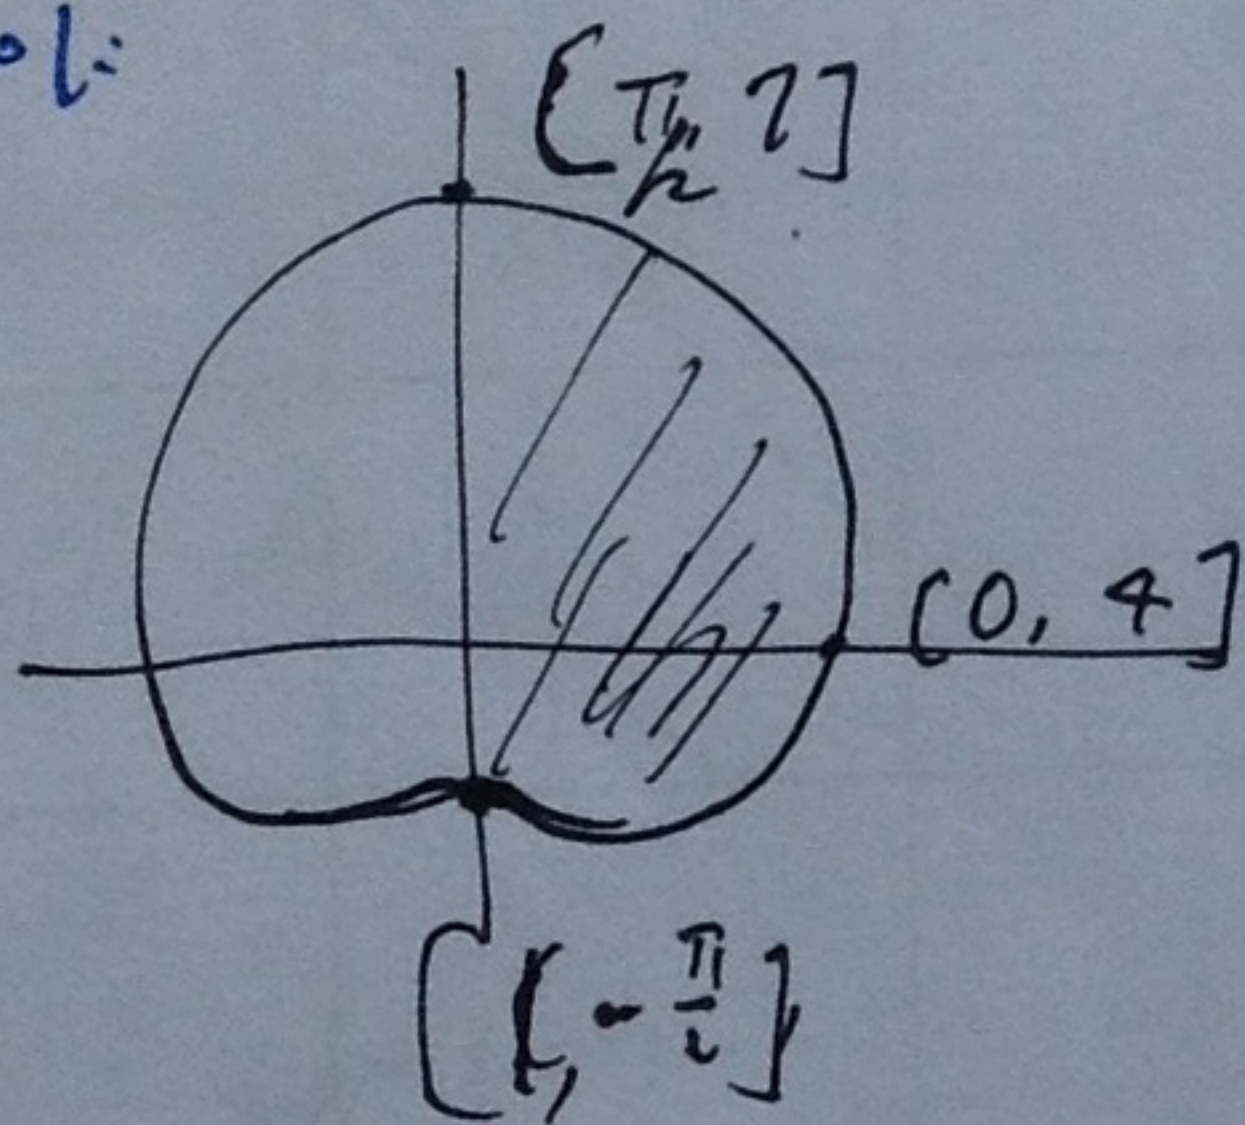 ol:
[π/2, 7]
[0, 4]
[1, -π/2]